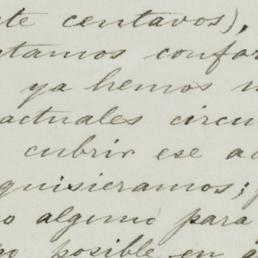 te centavos),
tamos confor
ya hemos
actuales circu
cubrir ese a
quisieramos;
o alguno para
posible en